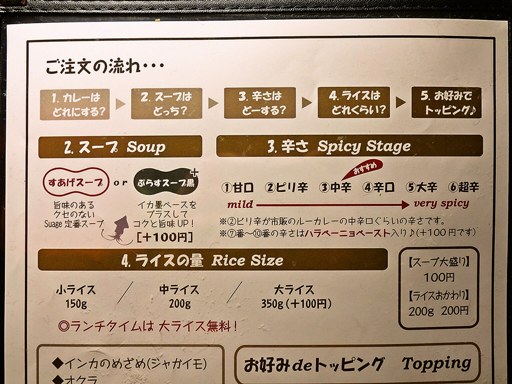 ご注文の流れ・・・
1. カレーは どれにする?
2. スープは どっち?
3. 辛さは どーする?
4. ライスは どれくらい?
5. お好みで トッピング♪
2. スープ Soup
すあげスープ or ぷらすスープ黒
旨味のある
クセのない
Suage 定番スープ
イカ墨ペースを
プラスして
コクと旨味UP!
[+100円]
3. 辛さ Spicy Stage
おすすめ
①甘口 ②ピリ辛 ③中辛 ④辛口 ⑤大辛 ⑥超辛
mild very spicy
※②ピリ辛が市販のルーカレーの中辛口ぐらいの辛さです。
※⑦番〜⑩番の辛さはハラペーニョペースト入り♪(+100円です)
4. ライスの量 Rice Size
小ライス 150g / 中ライス 200g / 大ライス 350g(+100円)
◎ランチタイムは 大ライス無料!
【スープ大盛り】
100円
【ライスおかわり】
200g 200円
◆インカのめざめ(ジャガイモ)
◆オクラ
お好みdeトッピング Topping